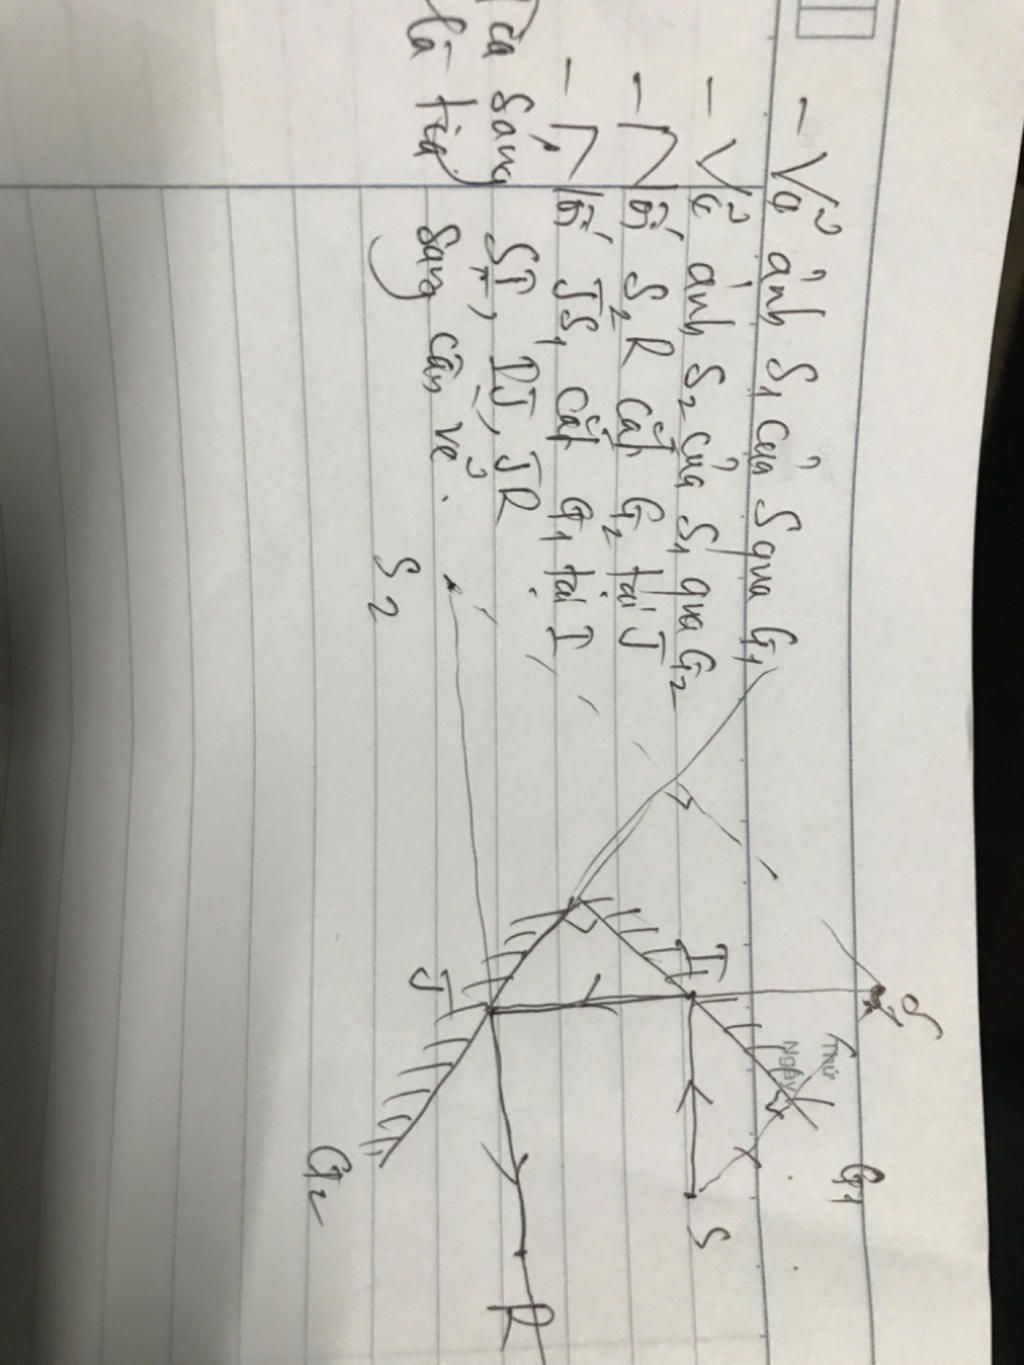 - Vẽ ảnh S₁ của S qua G₁
- Vẽ ảnh S₂ của S₁ qua G₂
- Nối S₂R cắt G₂ tại J
- Nối JS₁ cắt G₁ tại I
Tia sáng SI, IJ, JR
là tia sáng cần vẽ.
Thứ
Ngày
G₁
S
I
J
R
S₂
G₂